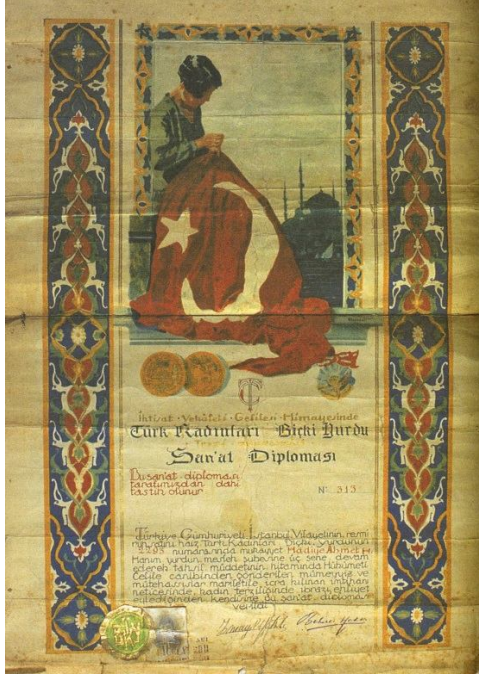 İktisat Vekâleti Celilesi Himayesinde
Türk Kadınları Biçki Yurdu
San'at Diploması
Bu san'at diploması
tarafımızdan dahi
tastik olunur
Nº 313
Türkiye Cümhuriyeti İstanbul Vilayetinin resmi
haiz Türk Kadınları Biçki Yurdunun
2293 numarasında mukayyet Hadiye Ahmet
Hanım yurdun mesleki şubesine üç sene devam
ederek tahsil müddetinin hitamında Hükûmeti
Celile canibinden gönderilen mümeyyiz ve
mütehassıslar marifetile icra kılınan imtihan
neticesinde kadın terziliğinde ibrazı ehliyet
eylediğinden kendisine bu san'at diploması
verildi